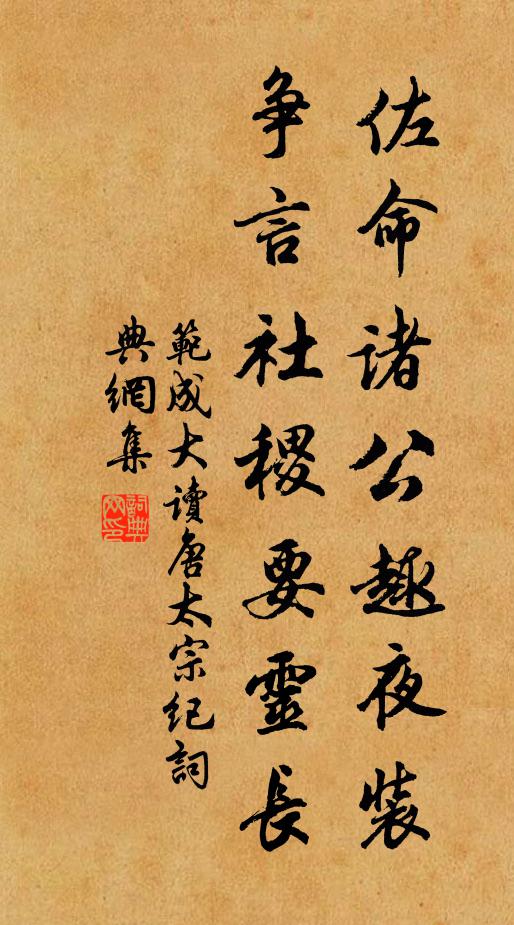 佐命诸公趣夜装
争言社稷要靈長
範成大讀唐太宗纪詞
典網集
詞典网印